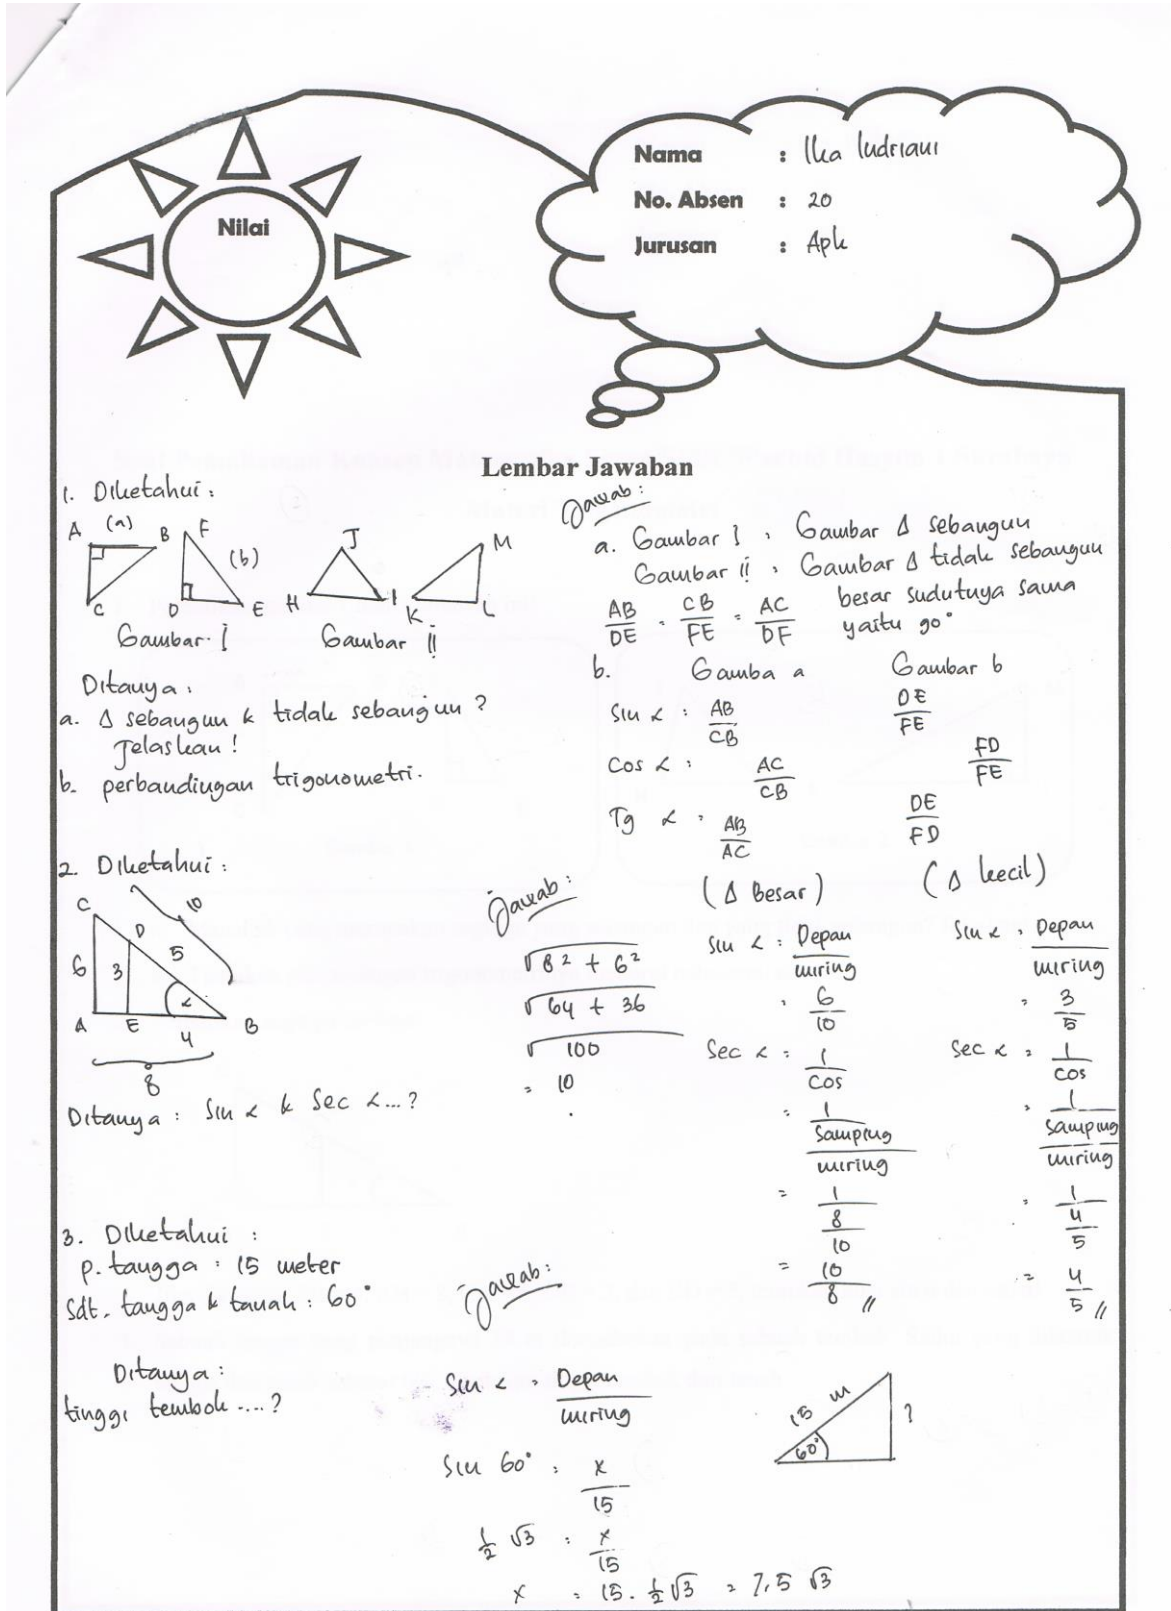 Nama : Ika Indriani
No. Absen : 20
Jurusan : Apk
Nilai
Lembar Jawaban
1. Diketahui :
A (a) B F (b) C D E
H J I K L M
Gambar I Gambar II
Ditanya :
a. Δ sebangun & tidak sebangun ?
Jelaskan !
b. perbandingan trigonometri.
Jawab :
a. Gambar I : Gambar Δ sebangun
Gambar II : Gambar Δ tidak sebangun
AB/DE = CB/FE = AC/DF
besar sudutnya sama
yaitu 90°
b. Gamba a Gambar b
Sin α = AB/CB DE/FE
Cos α = AC/CB FD/FE
Tg α = AB/AC DE/FD
2. Diketahui :
C 10
D 5
6 3 α
A E 4 B
8
Ditanya : Sin α & Sec α...?
Jawab :
√8² + 6²
√64 + 36
√100
= 10
(Δ Besar)
Sin α = Depan/miring
= 6/10
Sec α = 1/cos
= 1/(samping/miring)
= 1/(8/10)
= 10/8 //
(Δ kecil)
Sin α = Depan/miring
= 3/5
Sec α = 1/cos
= 1/(samping/miring)
= 1/(4/5)
= 4/5 //
3. Diketahui :
P. tangga : 15 meter
Sdt. tangga & tanah : 60°
Ditanya :
tinggi tembok ....?
Jawab :
Sin α = Depan/miring
Sin 60° = x/15
½ √3 = x/15
x = 15 . ½ √3 = 7,5 √3
15 m
60°
?